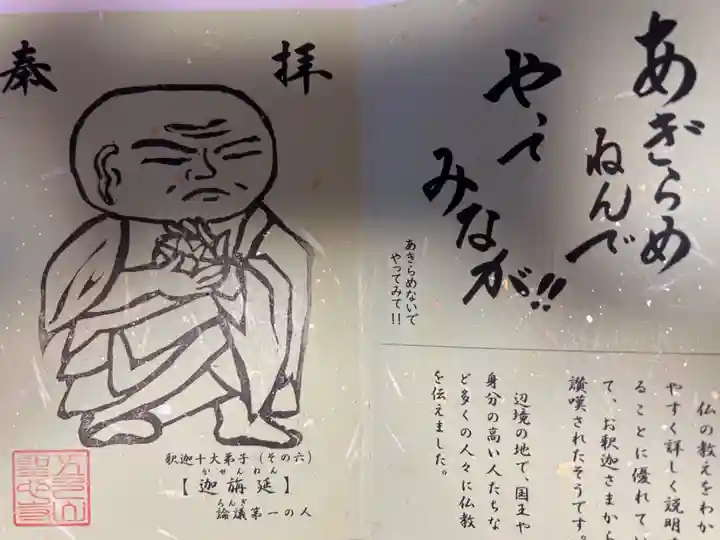 あぎらめ
ねんで
やって
みなが!!
あきらめないで
やってみて!!
仏の教えをわか
やすく詳しく説明
ることに優れてい
て、お釈迦さまから
讃嘆されたそうです。
辺境の地で、国王や
身分の高い人たちな
ど多くの人々に仏教
を伝えました。
拝
奉
釈迦十大弟子(その六)
かせんねん
【迦旃延】
ろんぎ
論議第一の人